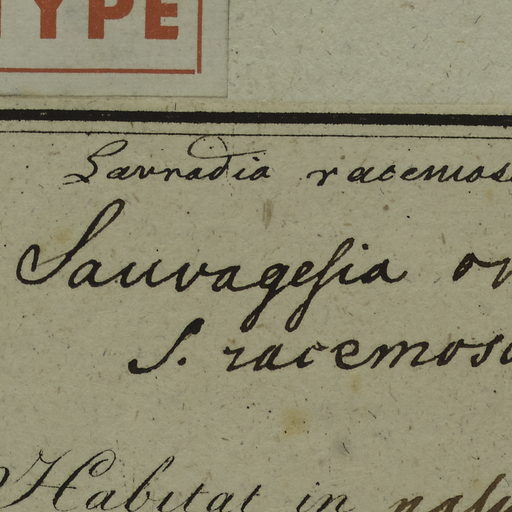 TYPE
Lavradia racemos
Sauvagesia or
S. racemosa
Habitat in